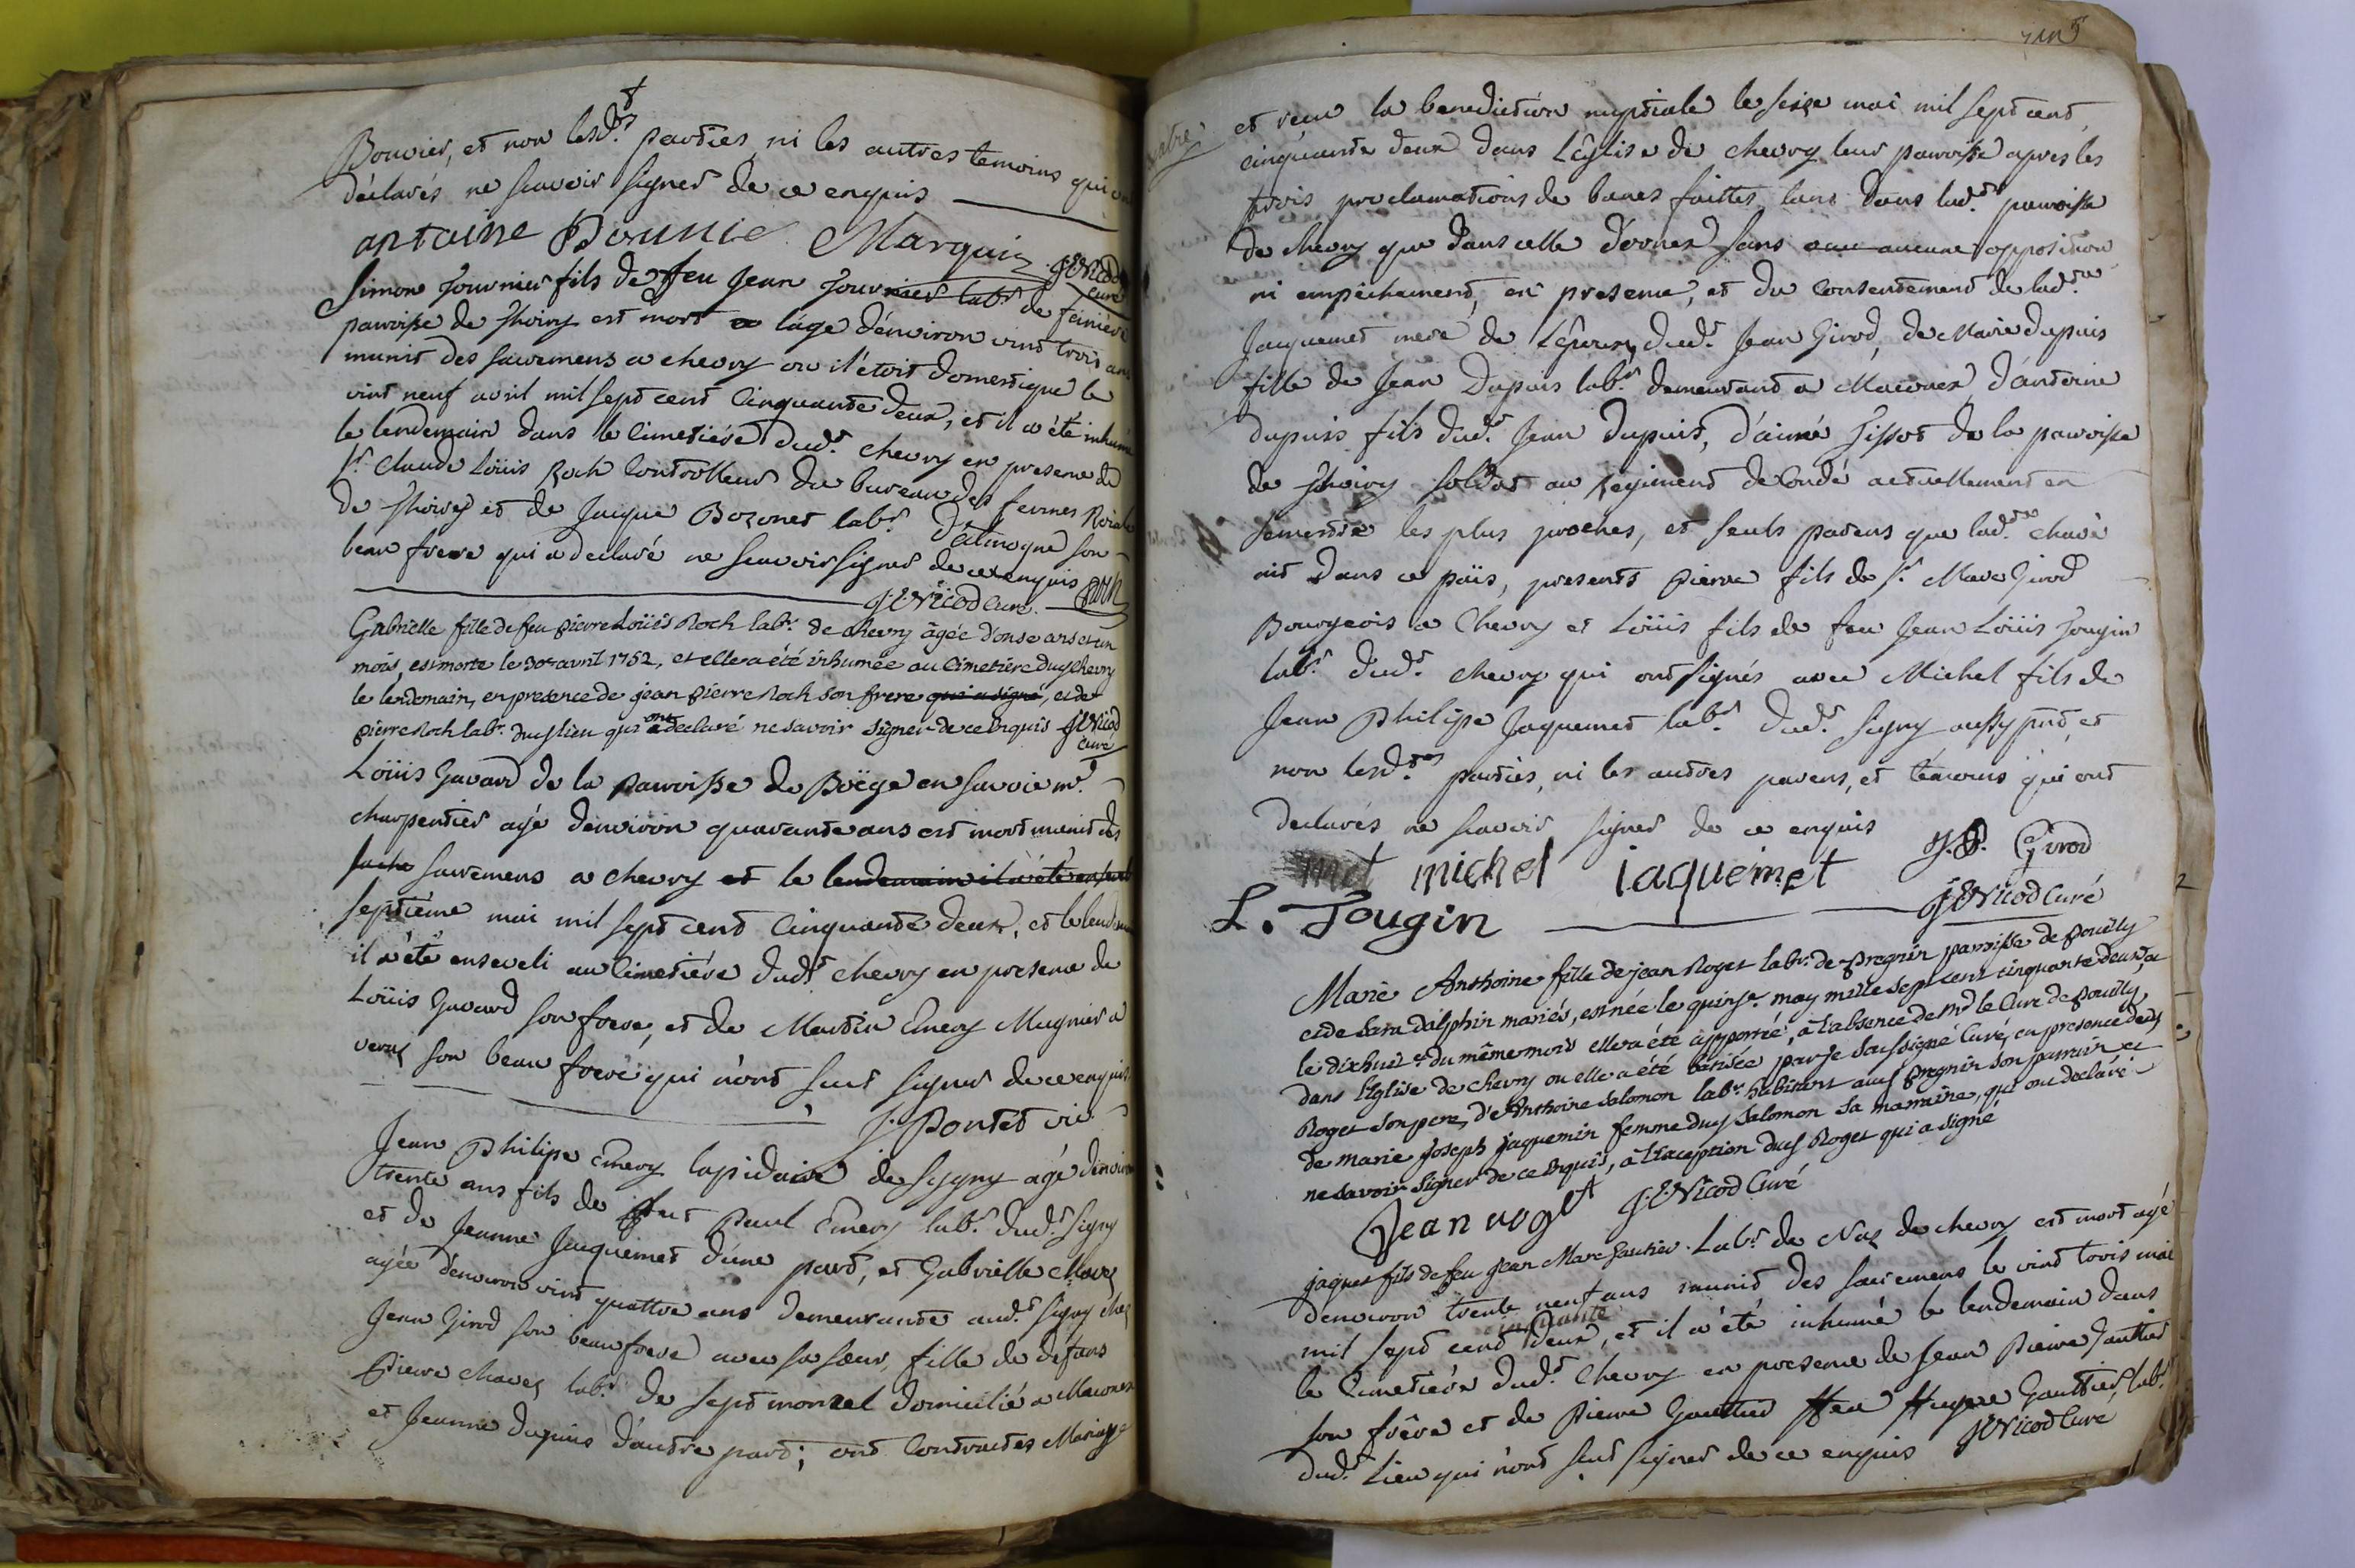 Bouvier, et non lesd.es parties ni les autres temoins qui ont
déclarés ne scavoir signer de ce enquis
antoine Bouuie Marquis J.E. Nicod
curé
Simon Fournier fils de feu Jean Fournier lab.r de feiniere
paroisse de Thoiry est mort a láge dénviron vint trois ans
munit des sacremens a chevry ou il étoit domestique le
vint neuf avril mil sept cent cinquante deux, et il a été inhumé
le lendemain dans le cimetiére dud.t chevry en presence de
S.r Claude Loüis Roch Controlleur du bureau des fermes Roiale
de Thoiry et de Jaque Bozonet lab.r d'allmogne son
beau frere qui a declaré ne scavoir signer de ce enquis Roch
J.E. Nicod Curé.
Gabrielle fille de feu pierre Loüis Roch lab.r de chevry âgée d'onse ans et un
mois, est morte le 30e avril 1752, et elle a été inhumée au Cimetiére dud chevry
le lendemain, en presence de jean pierre Roch son frere qui a signé, et de
pierre Roch lab.r dud lieu qui ont declaré ne savoir signer de ce enquis J.E. Nicod
curé
Loüis Gavard de la paroisse de Boëge en savoie m.e
charpentier agé dénviron quarante ans est mort munit des
sacremens a chevry et le lendemain il a été enseveli
septiéme mai mil sept cent cinquante deux, et le lendemain
il a été enseveli au Cimetiére dud.t chevry en presence de
Loüis Gavard son frere, et de Martin Emery Mugnier a
veraz son beau frere qui n'ont sceu signer de ce enquis
J. Pontet vic
Jean Philipe Emery lapidaire de sygny agé dénviron
trente ans fils de feut Paul Emery lab.r dud.t signy
et de Jeanne Jacquemet d'une part, et Gabrielle Chavez
agée dénviron vint quattre ans demeurante aud.t signy chez
Jean Girod son beau frere avec sa sœur, fille de defunt
Pierre chavez lab.r de sept moncel domicilié a Maconex
et Jeanne Dupuis d'autre part; ont contractés Mariage
et reçu la benediction nuptiale le seize mai mil sept cent
cinquante deux dans l'Eglise de chevry leur paroisse apres les
trois proclamations de bancs faittes tant dans lad.te paroisse
de chevry que dans celle d'ornex sans aucune opposition
ni empéchement, en presence, et du consentement de lad.te
Jacquemet mere de l'époux, dud.t Jean Girod, de Marie dupuis
fille de Jean Dupuis lab.r demeurant a Maconex, d'antoine
dupuis fils dud.t Jean Dupuis, d'aimé Tissot de la paroisse
de Thoiry soldat au regiment de Condé actuellement en
semestre les plus proches, et seuls parens que lad.te chavé
ait dans ce païs, presents Pierre fils de S.r Marc Girod
Bourgeois a Chevry et Loüis fils de feu Jean Loüis Fougin
lab.r dud.t chevry qui ont signés avec Michel fils de
Jean Philipe Jaquemet lab.r dud.t signy aussy pnt, et
non lesd.tes parties, ni les autres parens, et témoins qui ont
declarés ne scavoir signer de ce enquis J.P. Girod
michel iaquemet
L. Fougin J.E. Nicod Curé
Marie Anthoine fille de jean Roget lab.r de pregnin paroisse de pouilly
et de Sara Dalphin mariés, est née le quinse.e may mille sept cent cinquante deux, a
le dixhuit.e du même mois elle a été apporté, à l'absence de M.r le Curé de pouilly
dans l'Eglise de chevry ou elle a été batisée par je soussigné Curé, en presence dud
Roget son pere, d'Anthoine Salomon lab.r habitant aud pregnin son parrain et
de marie joseph jaquemin femme dud Salomon sa marraine, qui on declaré
ne savoir signer de ce enquis, à l'exception dud Roget qui a signé
Jean roget J.E. Nicod Curé
jaques fils de feu Jean Marc Gautier Lab.r de Naz de chevry est mort agé
dénviron trente neuf ans munit des sacremens le vint trois mai
cinquante
mil sept cent deux, et il a été inhumé le lendemain dans
le Cimetiére dud.t Chevry en presence de Jean Pierre Gauttier
son frére et de Pierre Gauttier feu Hugue Gauttier, lab.r
dud.t Lieu qui n'ont sceu signer de ce enquis J.E. Nicod Curé